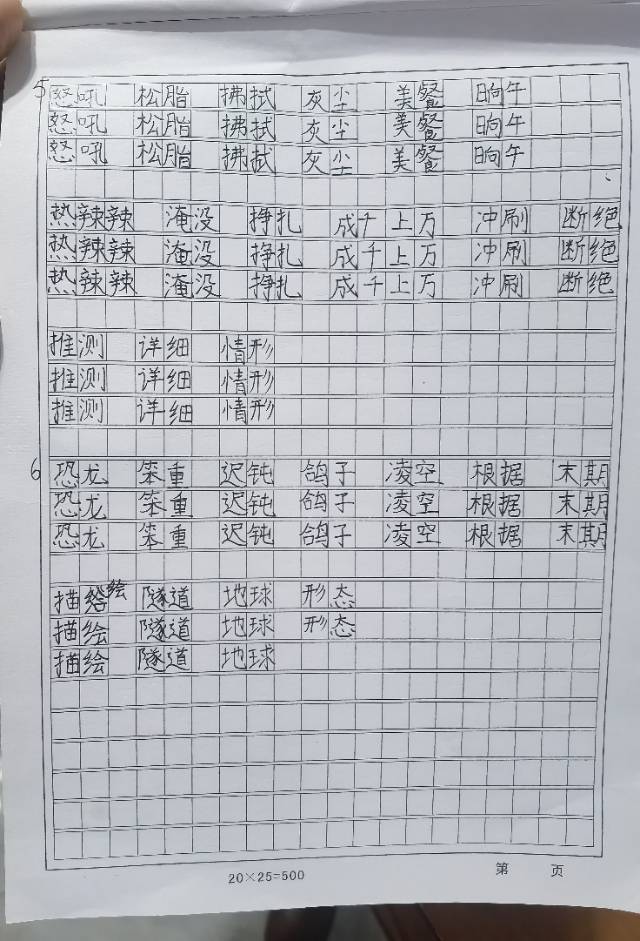 5 怒吼 松脂 拂拭 灰尘 美餐 晌午
怒吼 松脂 拂拭 灰尘 美餐 晌午
怒吼 松脂 拂拭 灰尘 美餐 晌午
热辣辣 淹没 挣扎 成千上万 冲刷 断绝
热辣辣 淹没 挣扎 成千上万 冲刷 断绝
热辣辣 淹没 挣扎 成千上万 冲刷 断绝
推测 详细 情形
推测 详细 情形
推测 详细 情形
6 恐龙 笨重 迟钝 鸽子 凌空 根据 末期
恐龙 笨重 迟钝 鸽子 凌空 根据 末期
恐龙 笨重 迟钝 鸽子 凌空 根据 末期
描绘 隧道 地球 形态
描绘 隧道 地球 形态
描绘 隧道 地球
20×25=500 第 页